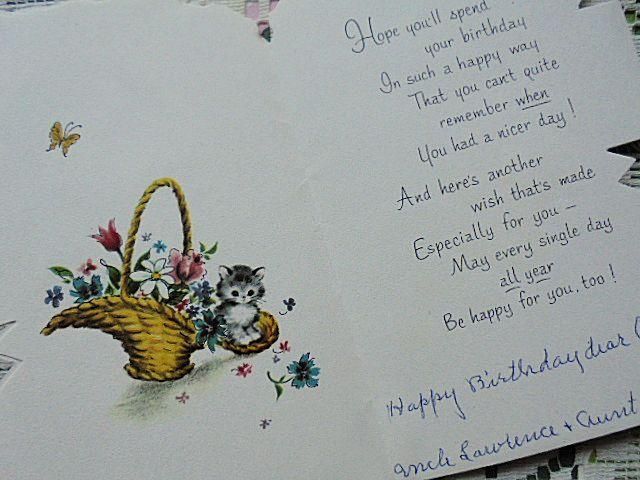 Hope you'll spend
your birthday
In such a happy way
That you can't quite
remember when
You had a nicer day!
And here's another
wish that's made
Especially for you —
May every single day
all year
Be happy for you, too!
Happy Birthday dear
Uncle Lawrence + Aunt